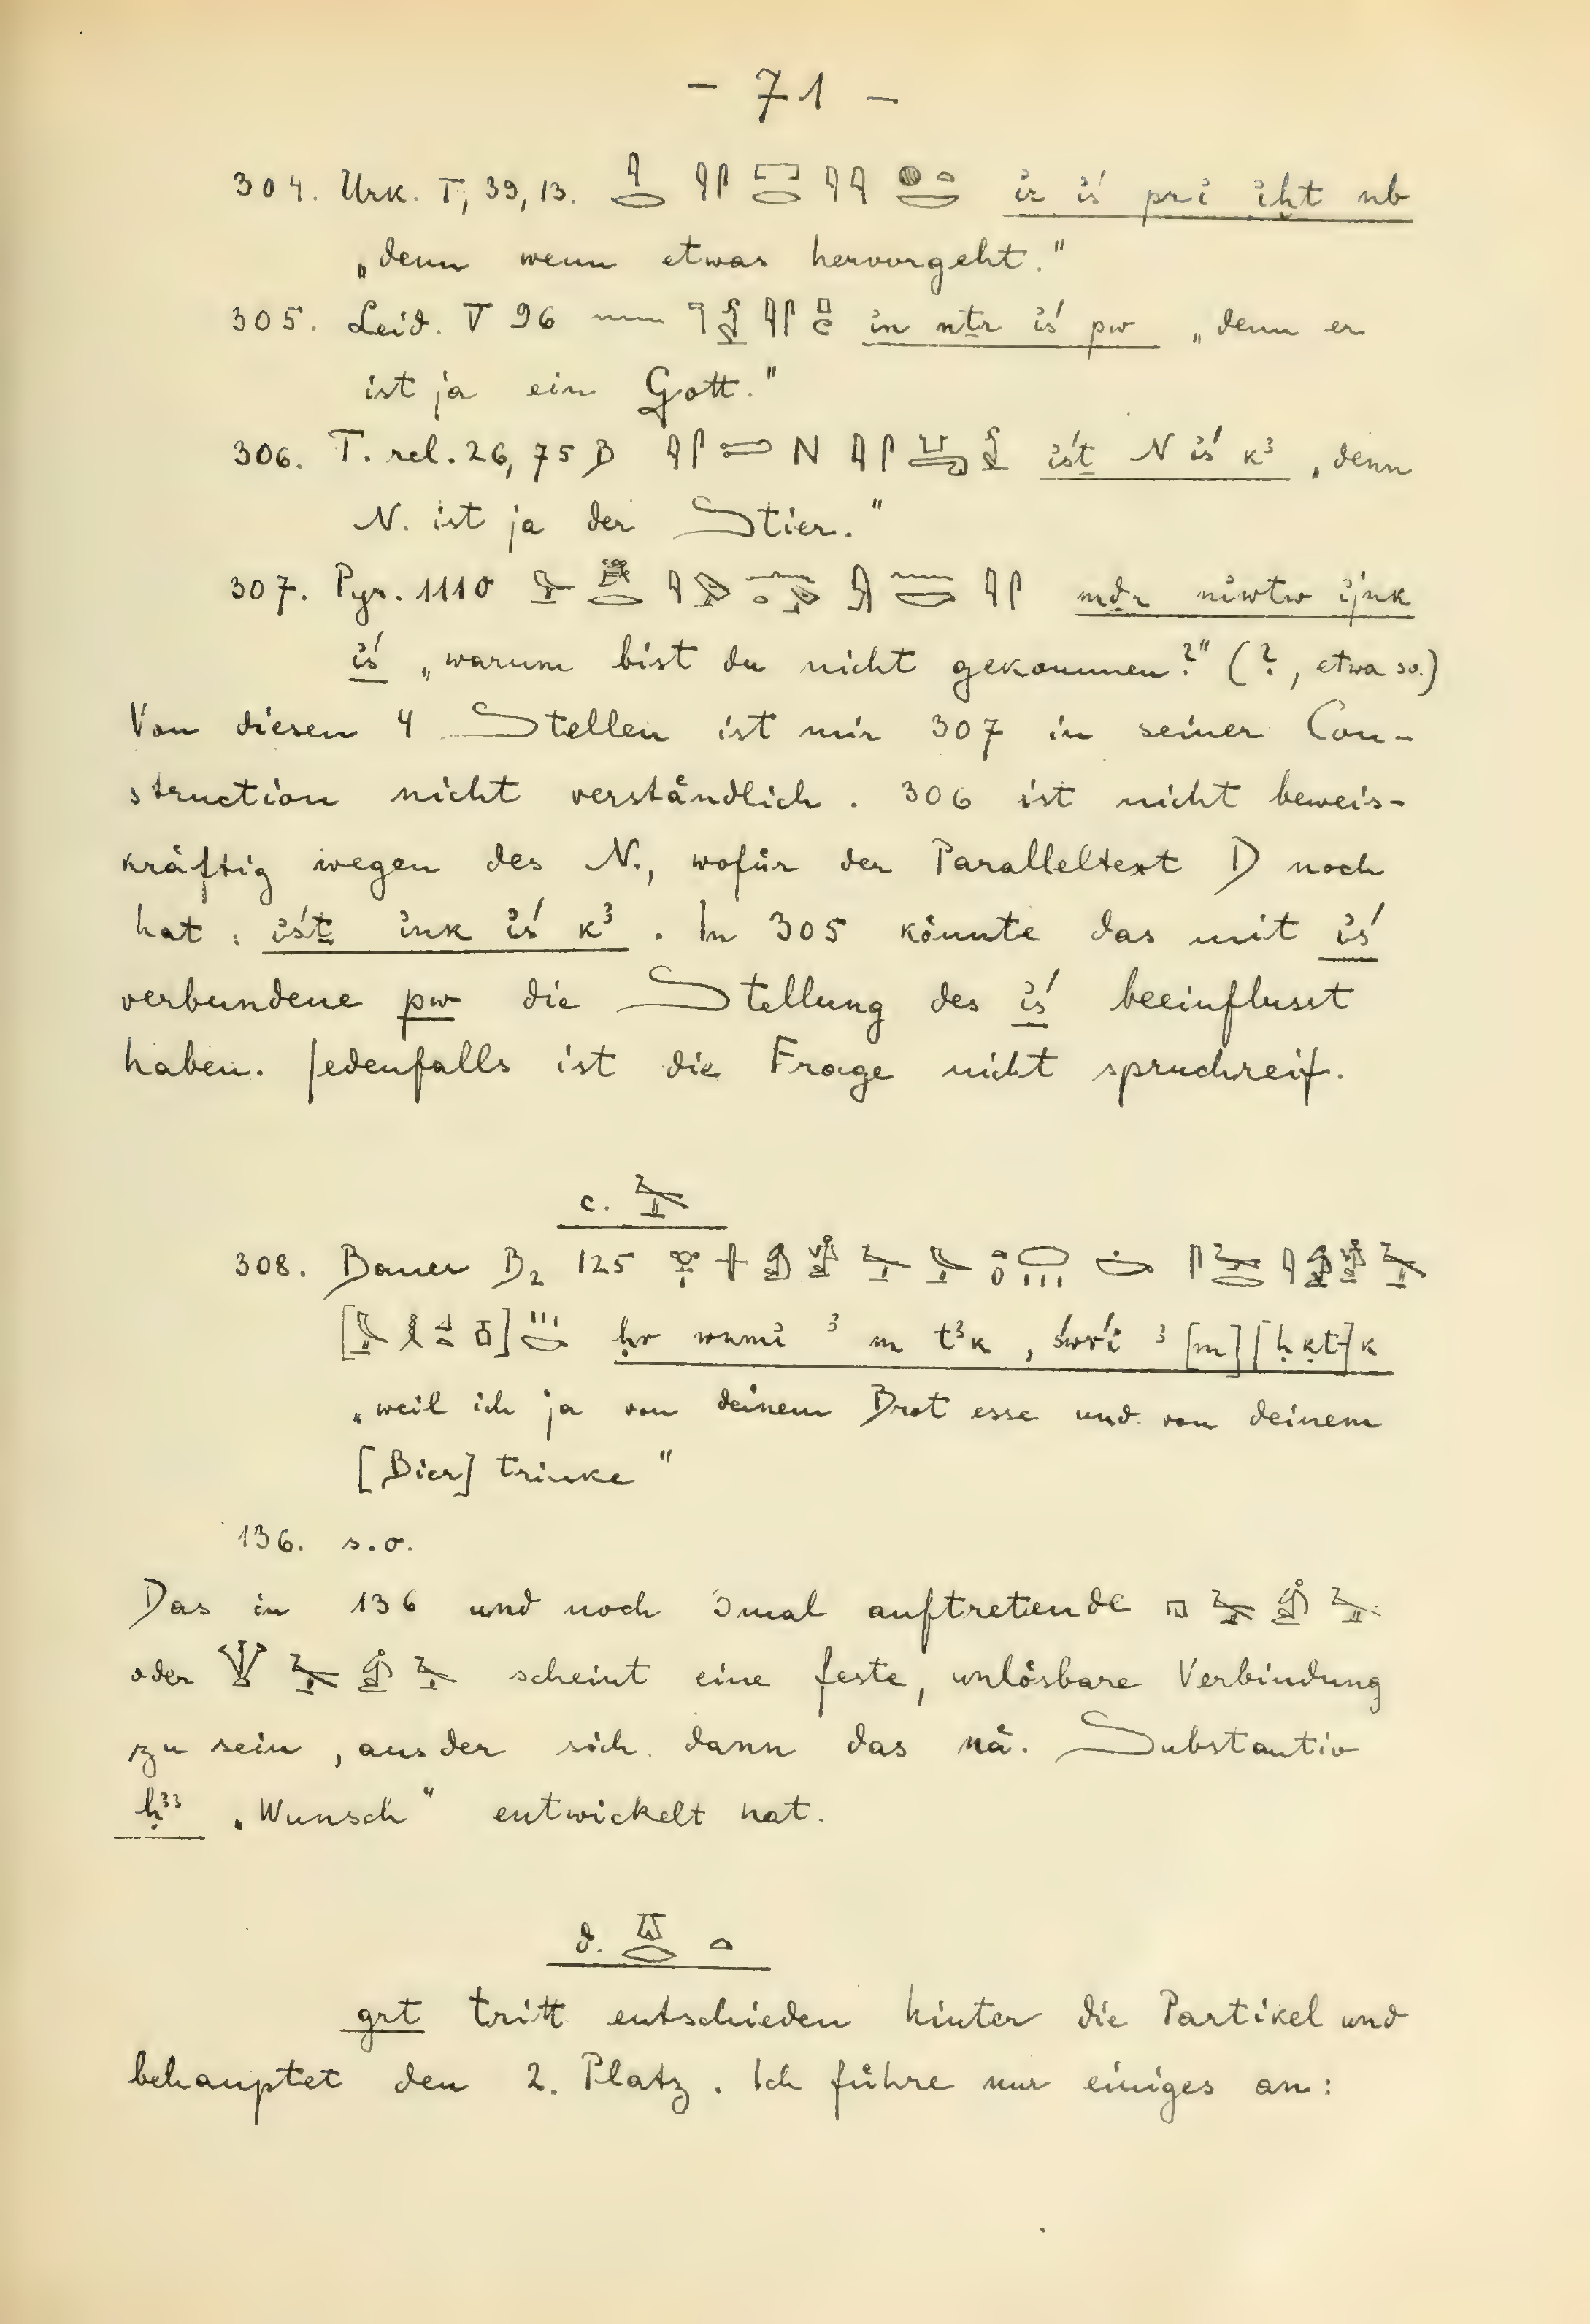 - 71 -
304. Urk. I, 39, 13. ir iś pri iḫt nb
„denn wenn etwas hervorgeht."
305. Leid. V 96 in nṯr iś pw „denn er
ist ja ein Gott."
306. T. rel. 26, 75 B N iśṯ N iś k³ „denn
N. ist ja der Stier."
307. Pyr. 1110 mḏr niwtw ijnk
iś „warum bist du nicht gekommen?" (?, etwa so.)
Von diesen 4 Stellen ist mir 307 in seiner Con-
struction nicht verständlich. 306 ist nicht beweis-
kräftig wegen des N., wofür der Paralleltext D noch
hat: iśṯ ink iś k³. In 305 könnte das mit iś
verbundene pw die Stellung des iś beeinflusst
haben. Jedenfalls ist die Frage nicht spruchreif.
c.
308. Bauer B₂ 125
[ ] ḥr wnmi ³ m t³k, śwri ³ [m] [ḥḳt]k
„weil ich ja von deinem Brot esse und von deinem
[Bier] trinke"
136. s.o.
Das in 136 und noch 3mal auftretende
oder scheint eine feste, unlösbare Verbindung
zu sein, aus der sich dann das nä. Substantiv
ḫ³³ „Wunsch" entwickelt hat.
d.
grt tritt entschieden hinter die Partikel und
behauptet den 2. Platz. Ich führe nur einiges an: